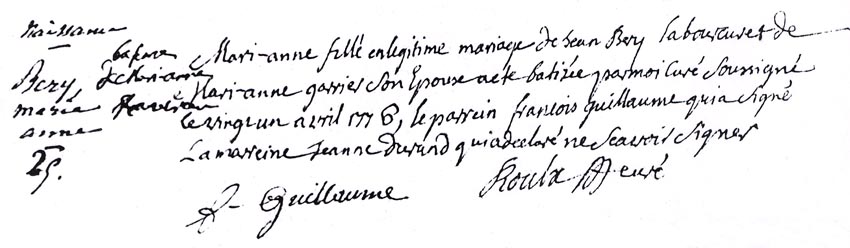 naissance
Bery,
marie
anne
25.
bapteme
de Marianne
Mari-anne fille en legitime mariage de jean Bery laboureur et de
Mari-anne garrier son Epouse a ete batizée par moi curé soussigné
le vingt un avril 1776, le parrain françois guillaume qui a signé
La marreine Jeanne Durand qui a declaré ne scavoir signer
f- Guillaume
Roulx curé